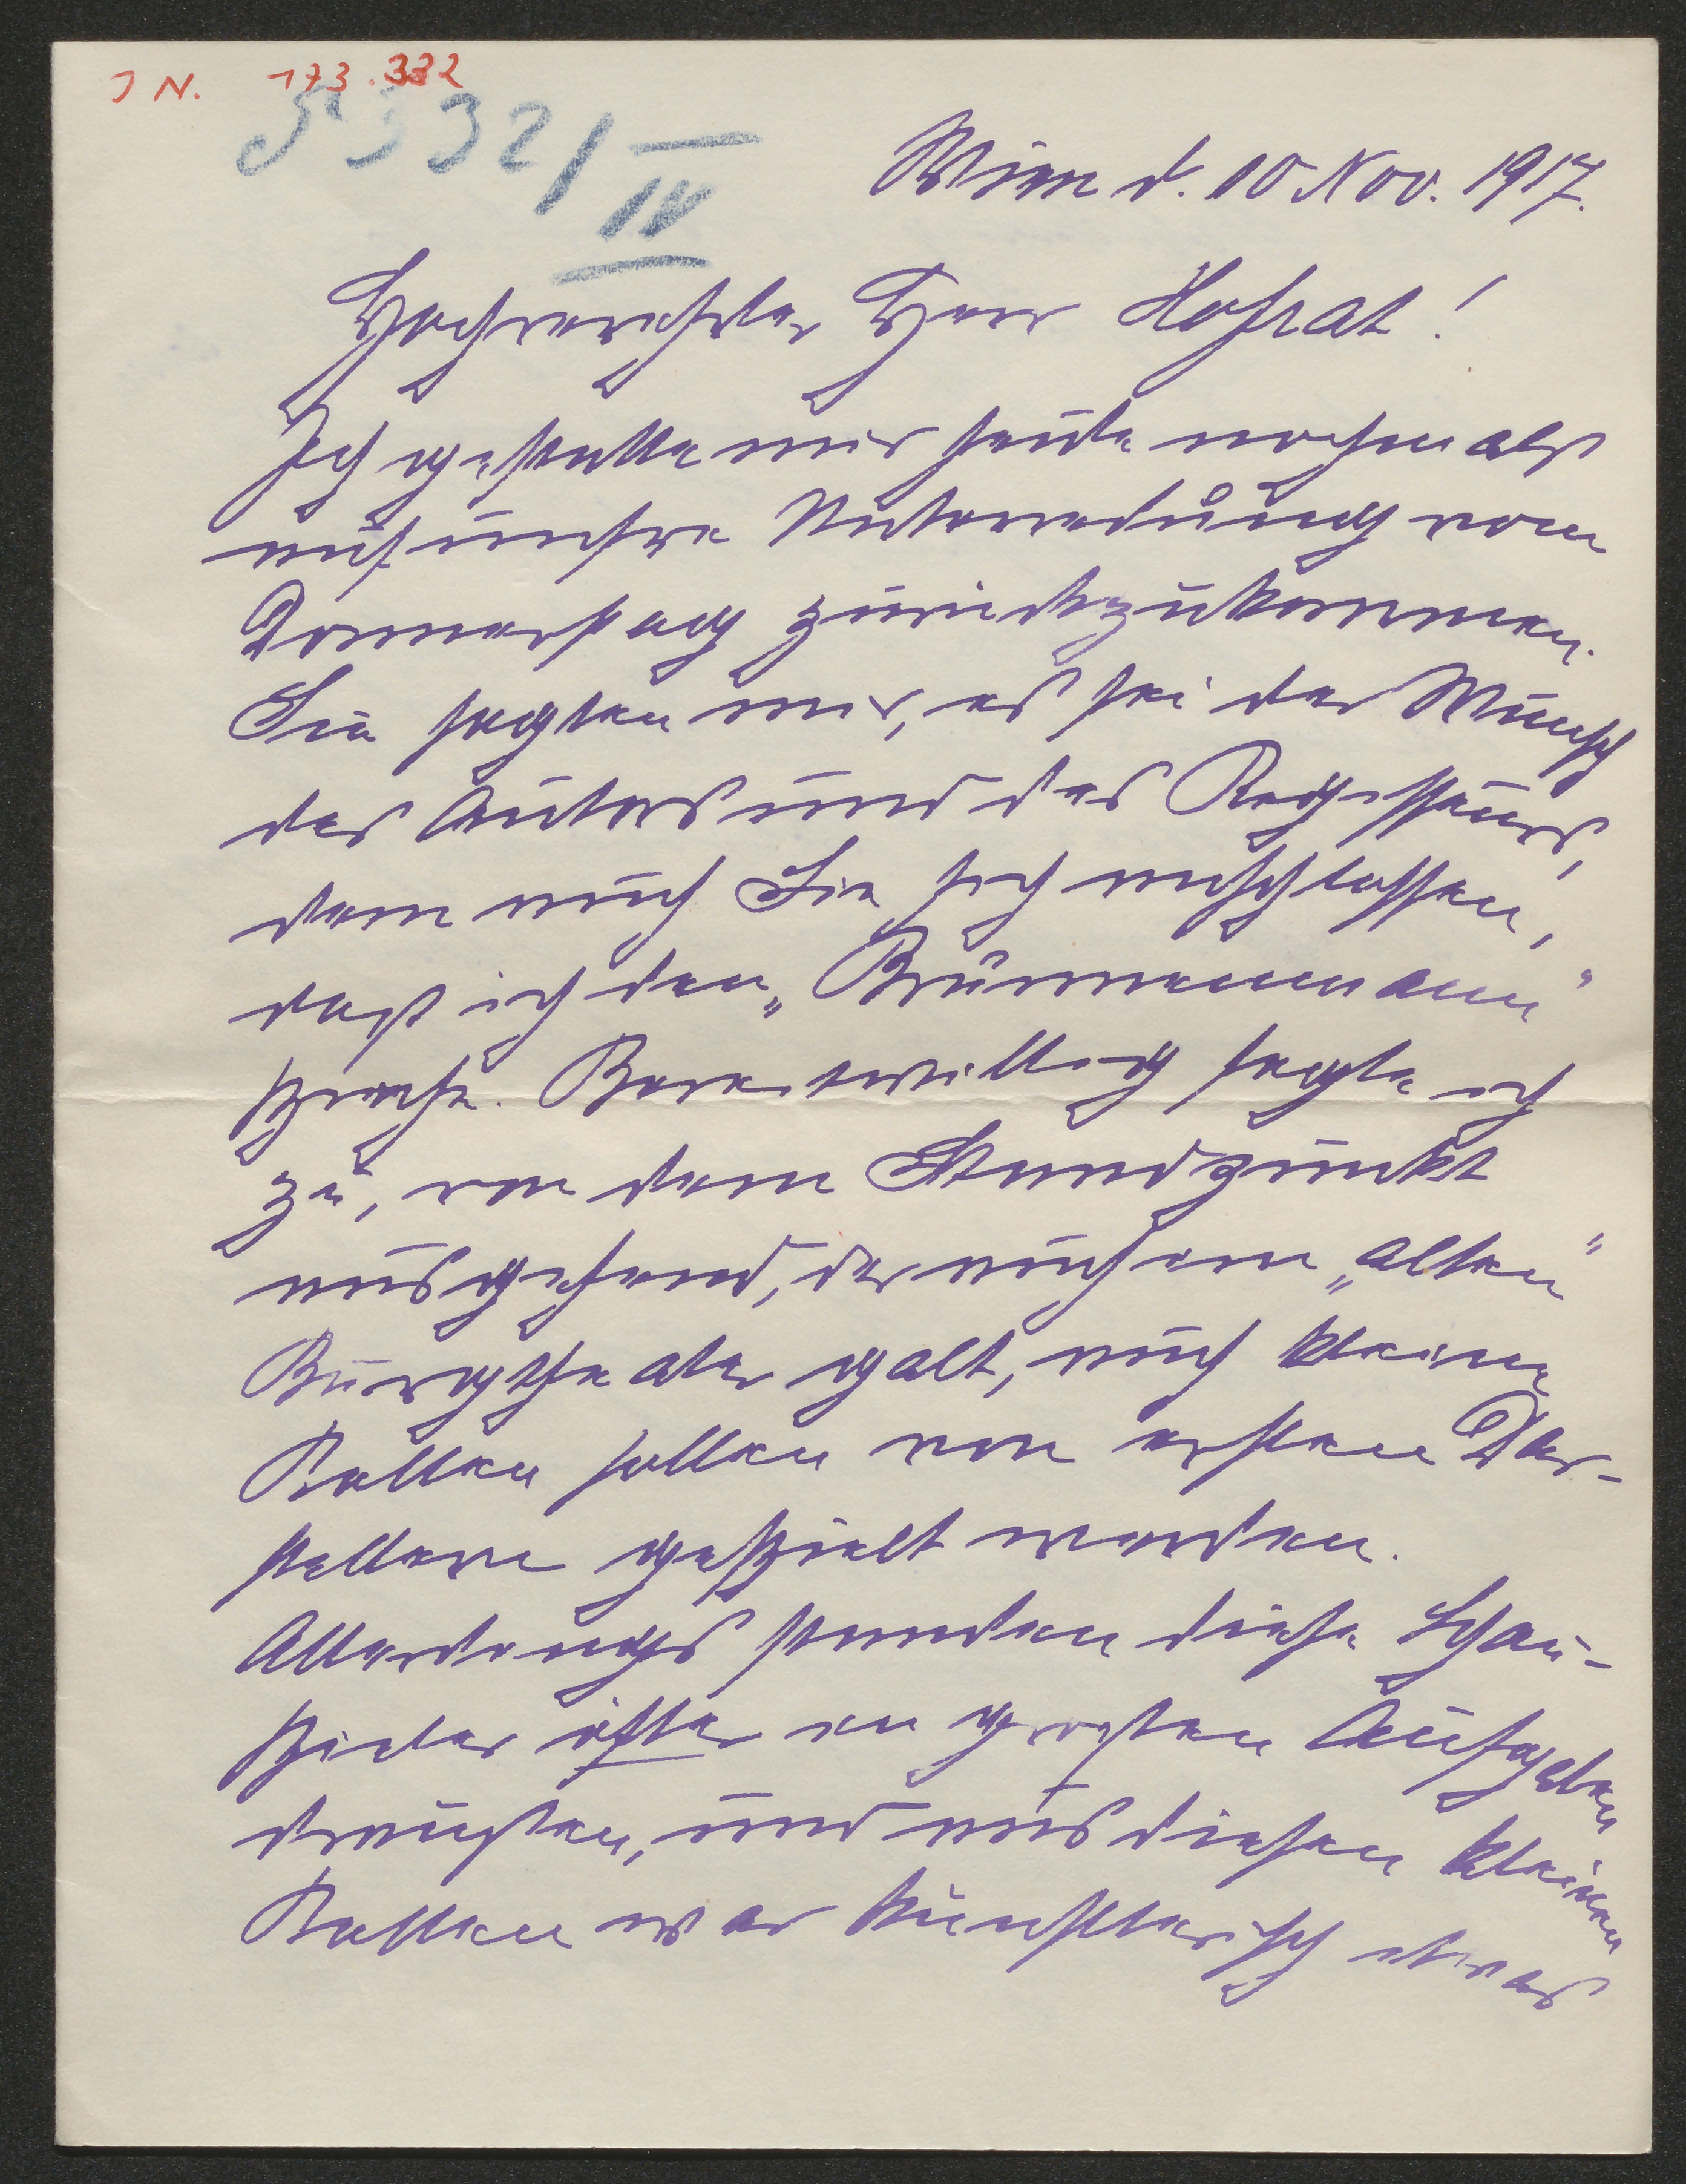 I N. 173.332
S 332/IV
Wien d. 10 Nov. 1917.
Hochverehrter Herr Hofrat!
Ich gestatte mir heute nochmals
auf unsere Unterredung vom
Donnerstag zurückzukommen.
Sie sagten mir, es sei der Wunsch
des Autors und des Regisseurs,
dem auch Sie sich anschlossen,
dass ich den „Brunnenmann“
spreche. Bereitwillig sagte ich
zu, von dem Standpunkt
ausgehend, der auch am „alten“
Burgtheater galt, auch kleine
Rollen sollen von ersten Dar-
stellern gespielt werden.
Allerdings standen diese Schau-
spieler öfter in grossen Aufgaben
draussen, und aus diesen kleinen
Rollen war künstlerisch etwas